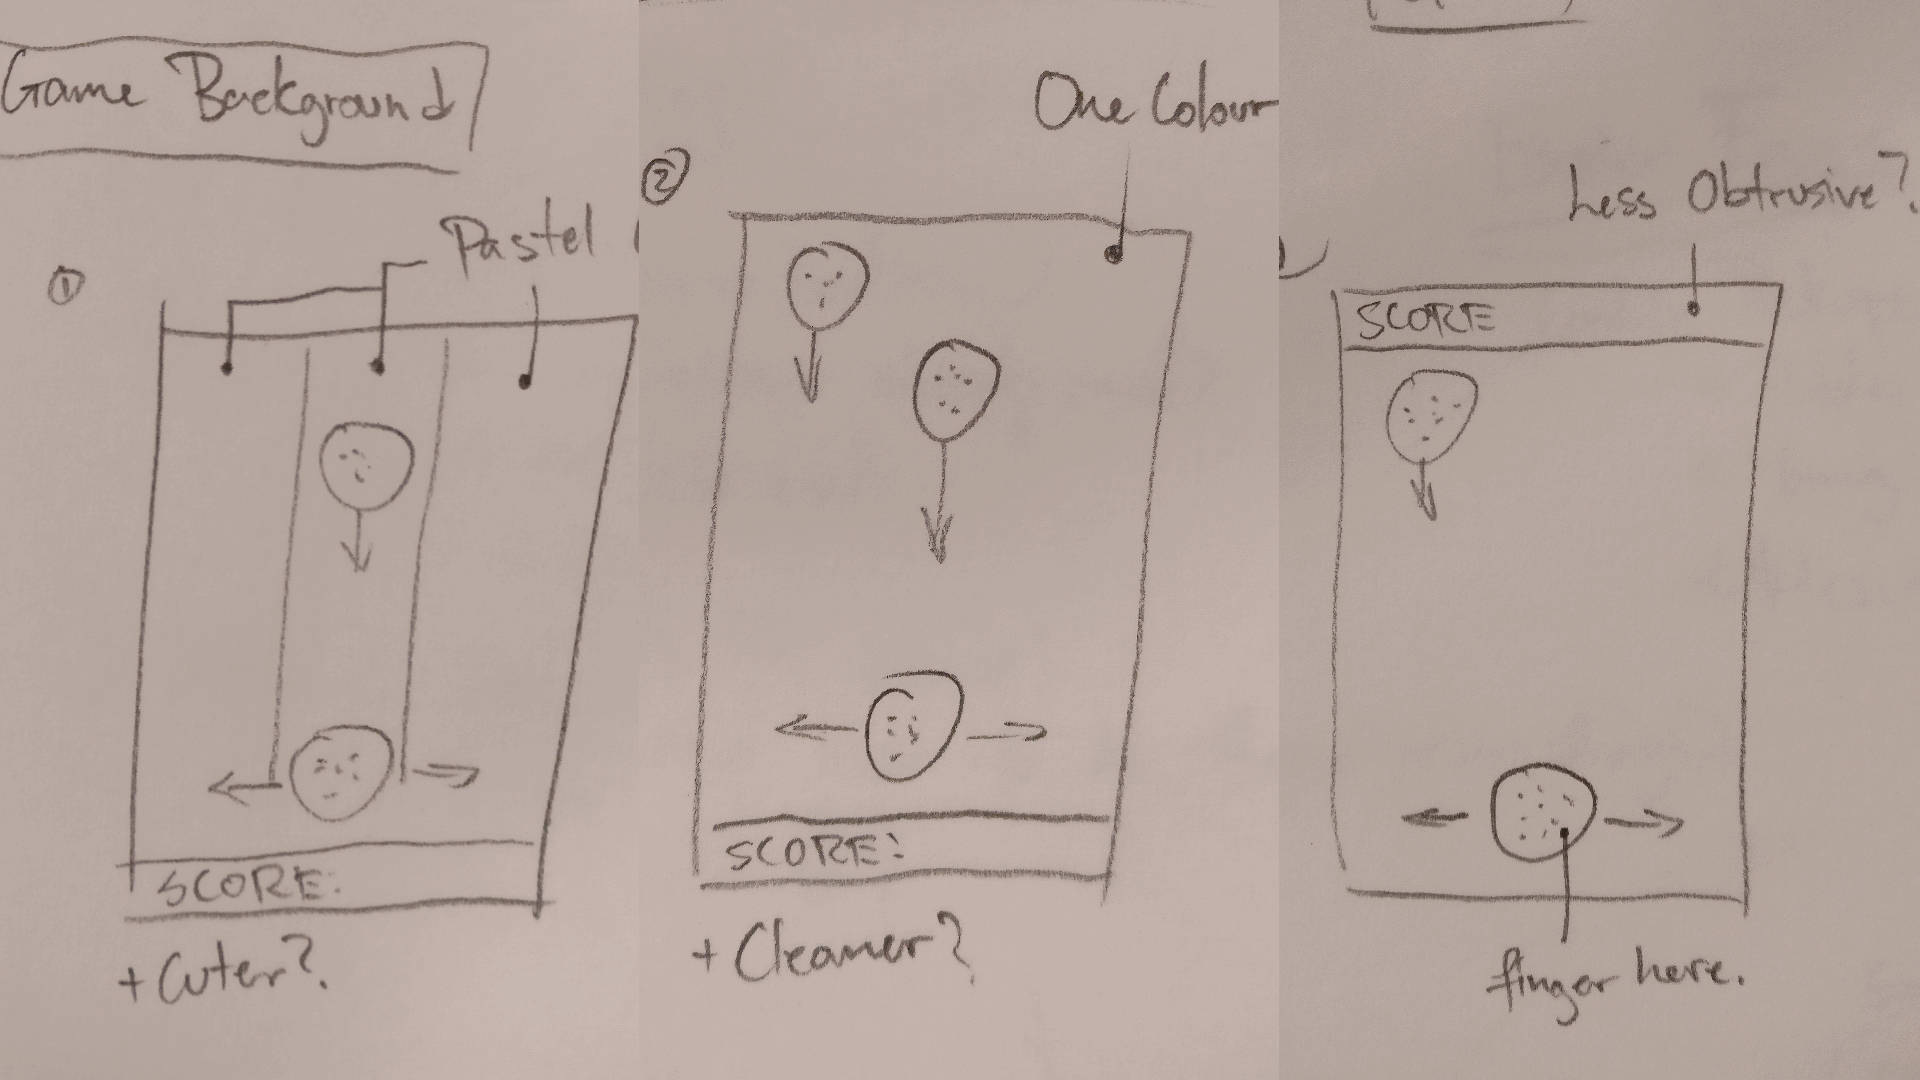 Game Background
①
Pastel
SCORE:
+ Cuter?
②
One Colour
SCORE:
+ Cleaner?
Less Obtrusive?
SCORE
finger here.